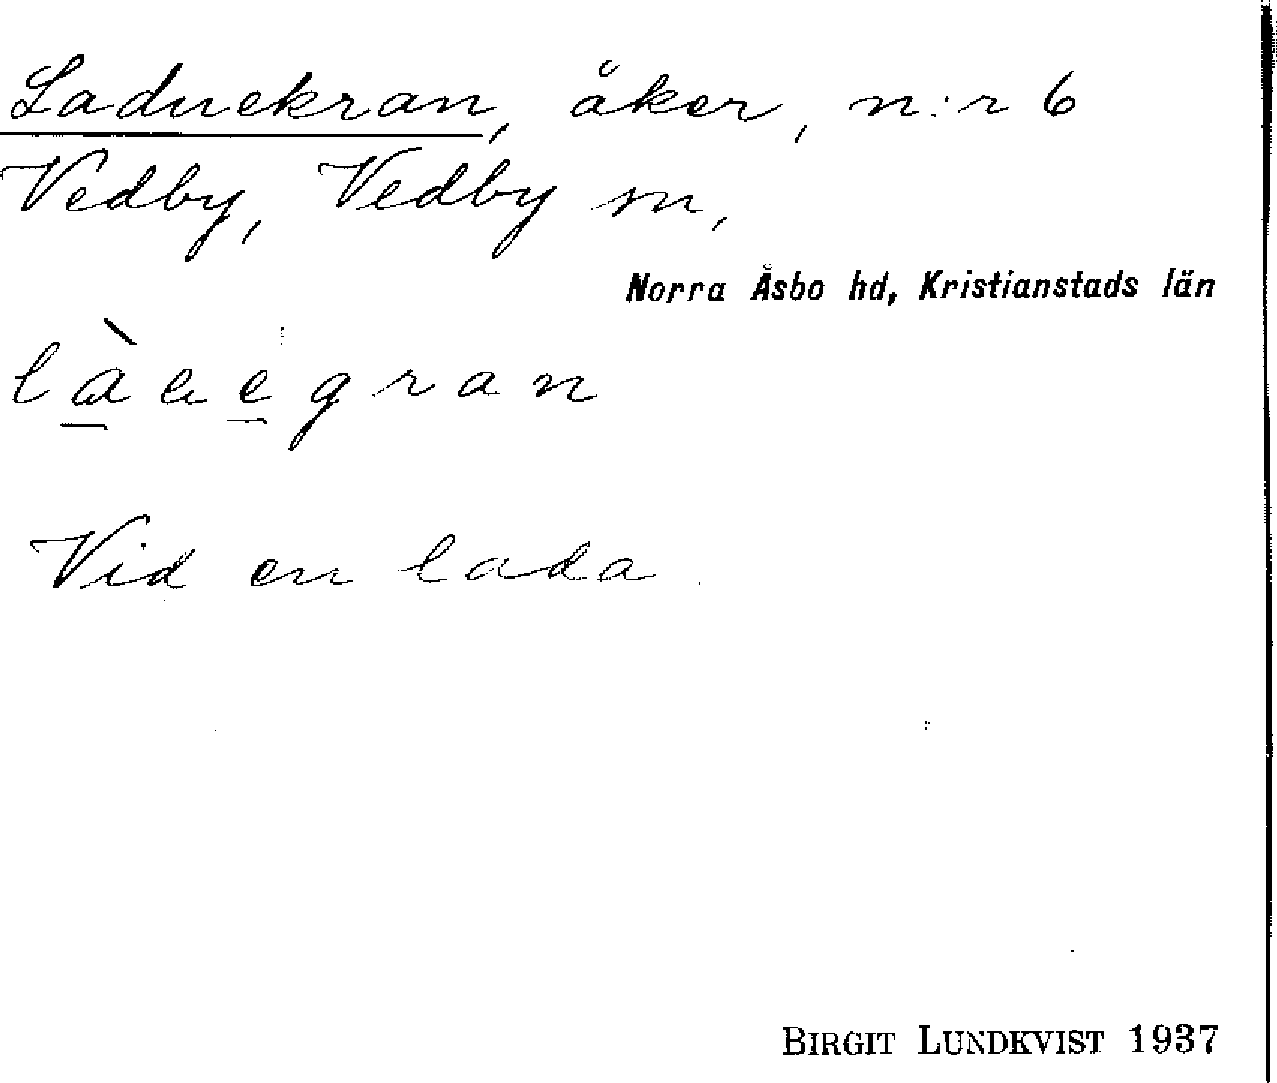 Laduekran, åker, n:r 6
Vedby, Vedby sn,
Norra Åsbo hd, Kristianstads län
Vid en lada.
BIRGIT LUNDKVIST 1937